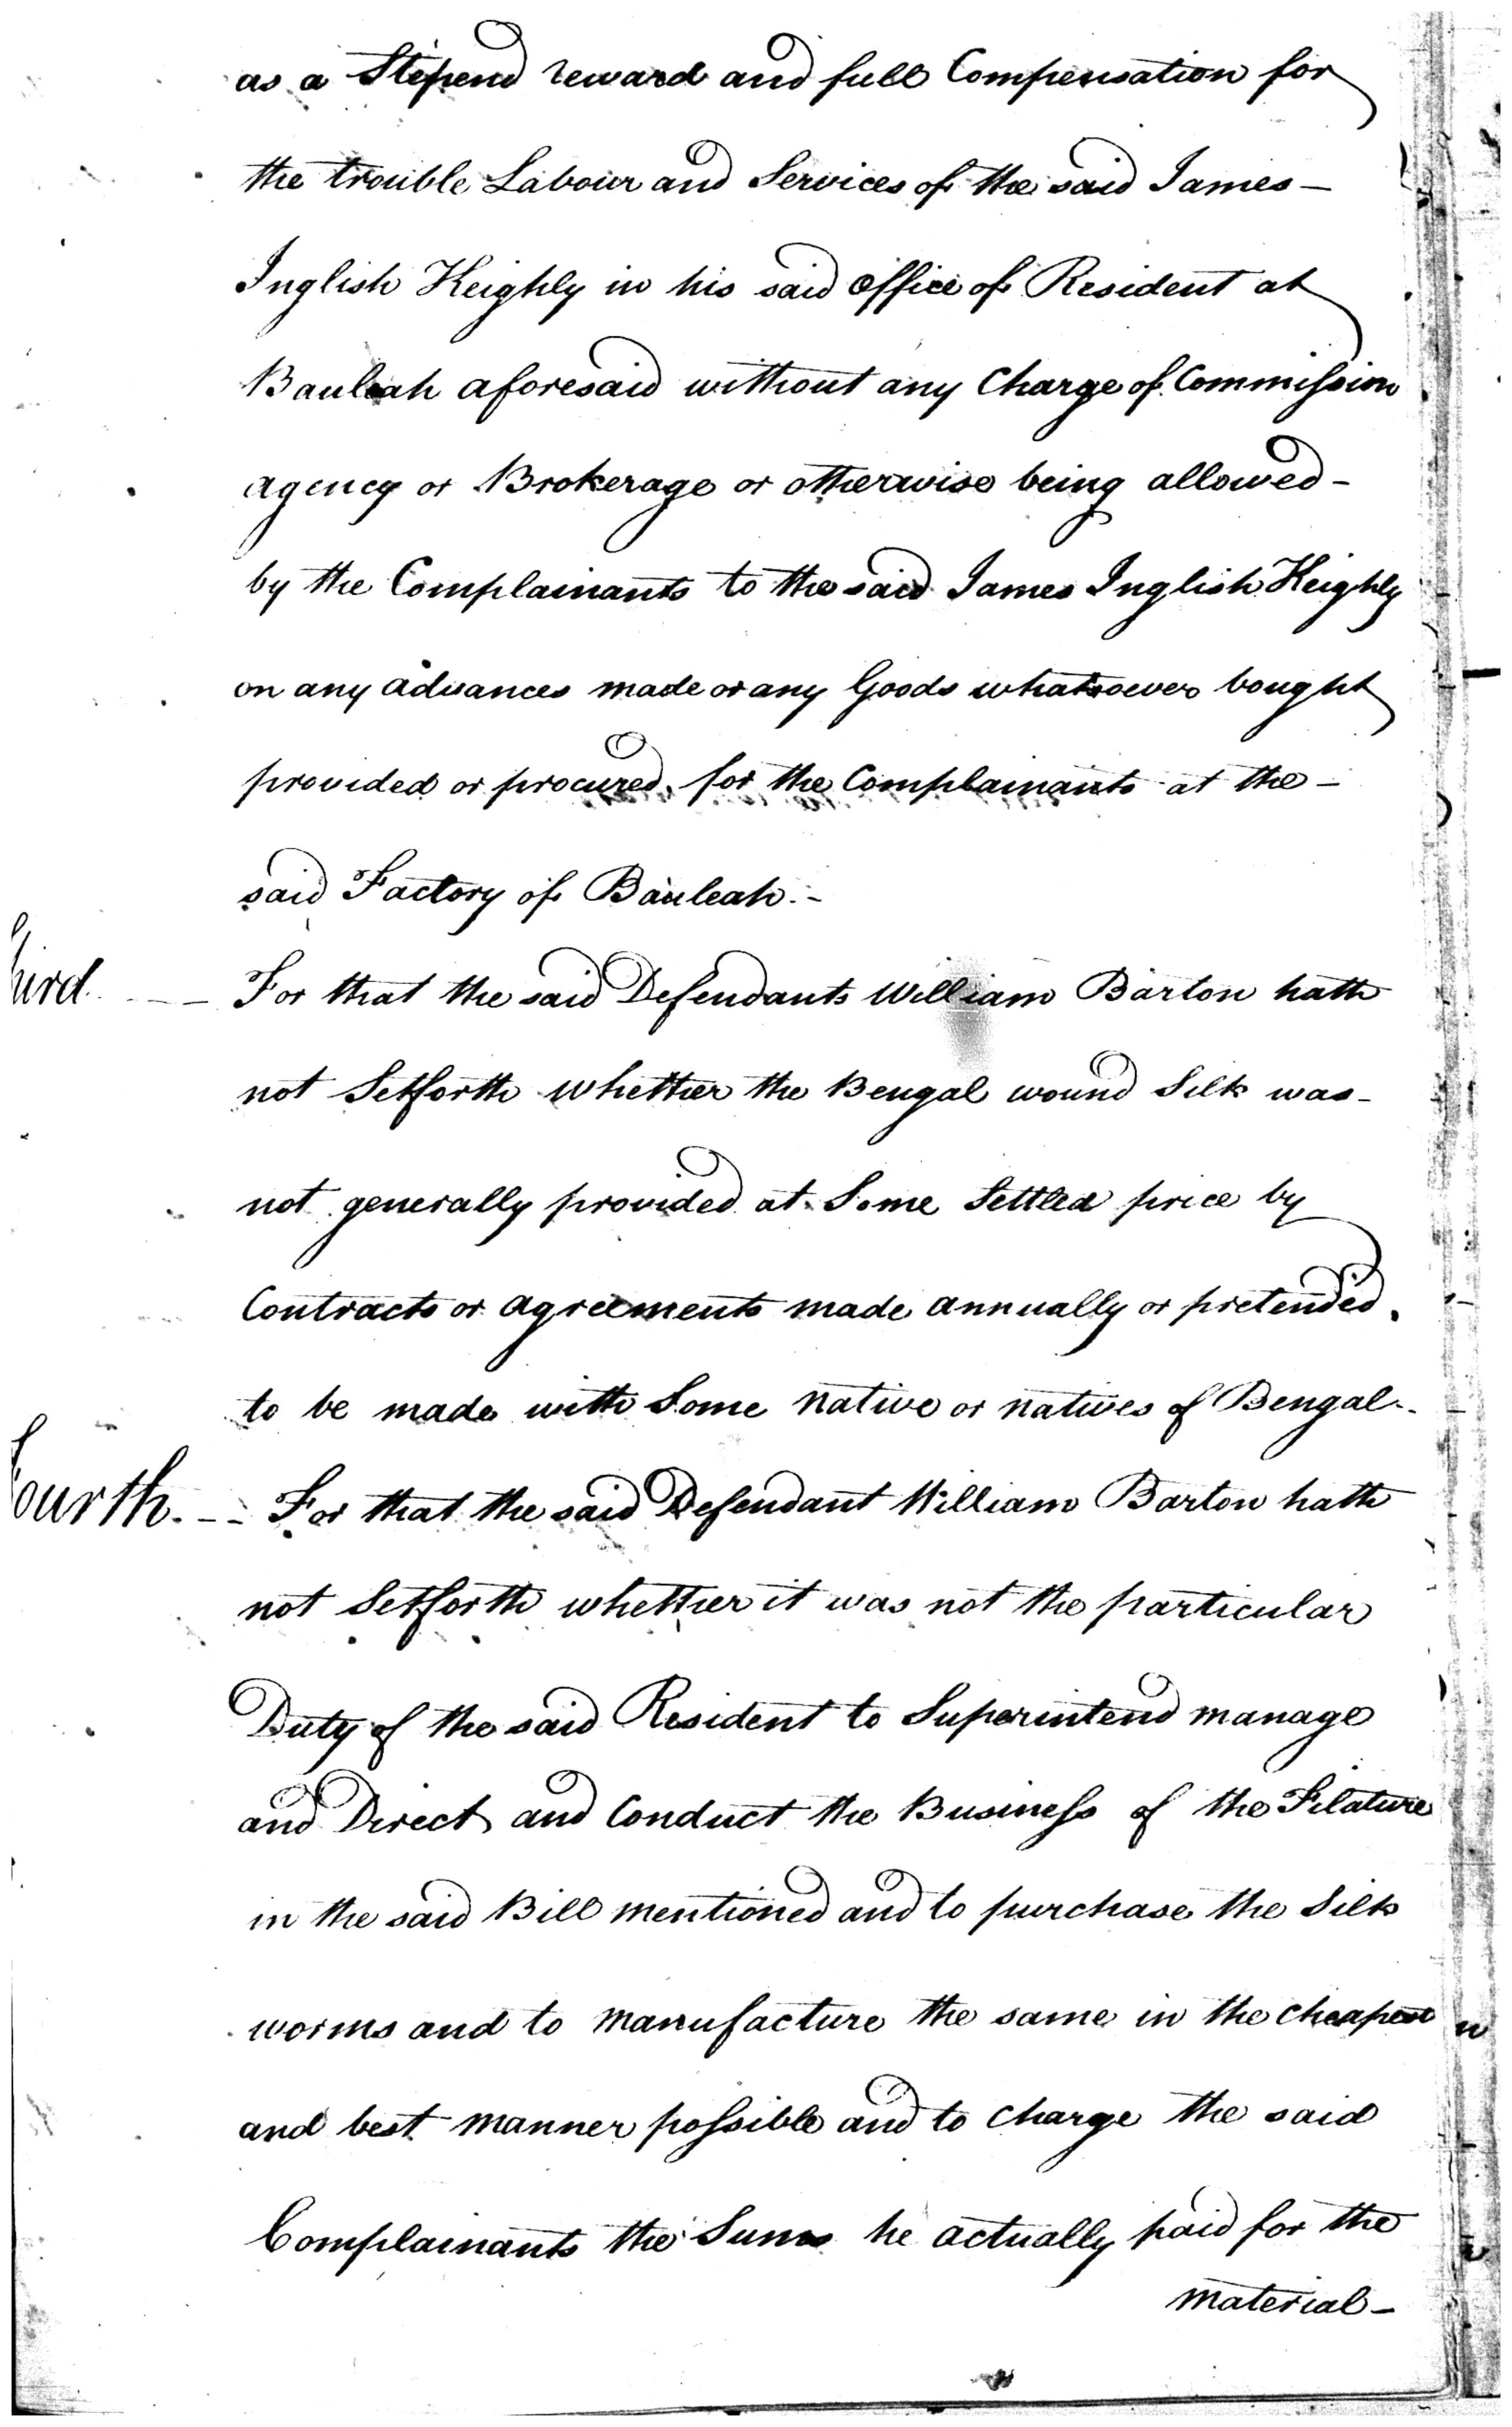 as a Stepend reward and full Compensation for
the trouble Labour and Services of the said James –
Inglish Keighly in his said office of Resident at
Bauleah aforesaid without any Charge of Commission
agency or Brokerage or otherwise being allowed –
by the Complainants to the said James Inglish Keighly
on any advances made or any Goods whatsoever bought
provided or procured for the Complainants at the –
said Factory of Bauleah. –
hird. — — For that the said Defendants William Barton hath
not Setforth whether the Bengal wound Silk was –
not generally provided at Some Settled price by
Contracts or agreements made annually or pretended
to be made with Some native or natives of Bengal. –
ourth. — – For that the said Defendant William Barton hath
not Setforth whether it was not the particular
Duty of the said Resident to Superintend manage
and Direct and Conduct the Business of the Filature
in the said Bill mentioned and to purchase the Silk
worms and to manufacture the same in the cheapest
and best manner possible and to charge the said
Complainants the Sums he actually paid for the
material –